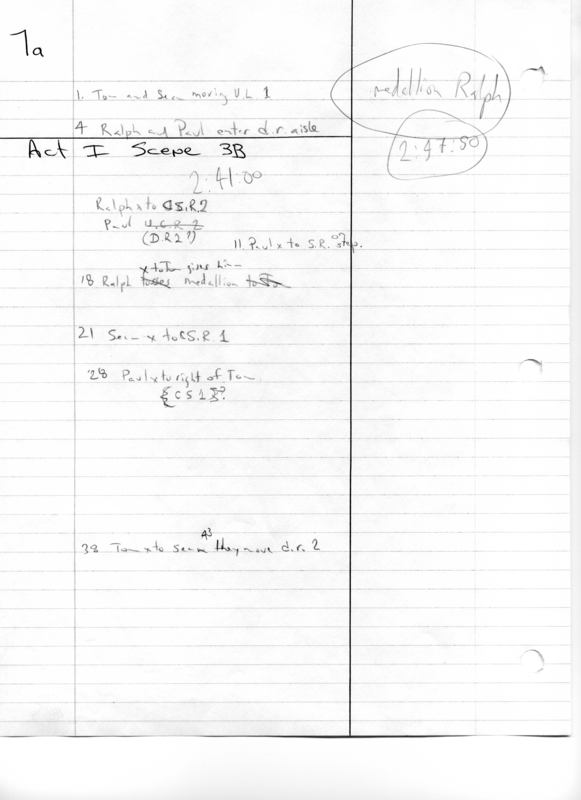 7a
medallion Ralph
1. Tom and Sean moving U.L. 1
4 Ralph and Paul enter d.r. aisle
2:47:50
Act I Scene 3B
2:41:00
Ralph x to C S.R.2
Paul U.C.R. 2
(D.R 2?)
11. Paul x to S.R. of step.
x to Tom gives him
18 Ralph tosses medallion to Tom
21 Sean x to C S.R 1
28 Paul x to right of Tom
{CS1}?
43
38 Tom x to Sean they move d.r. 2